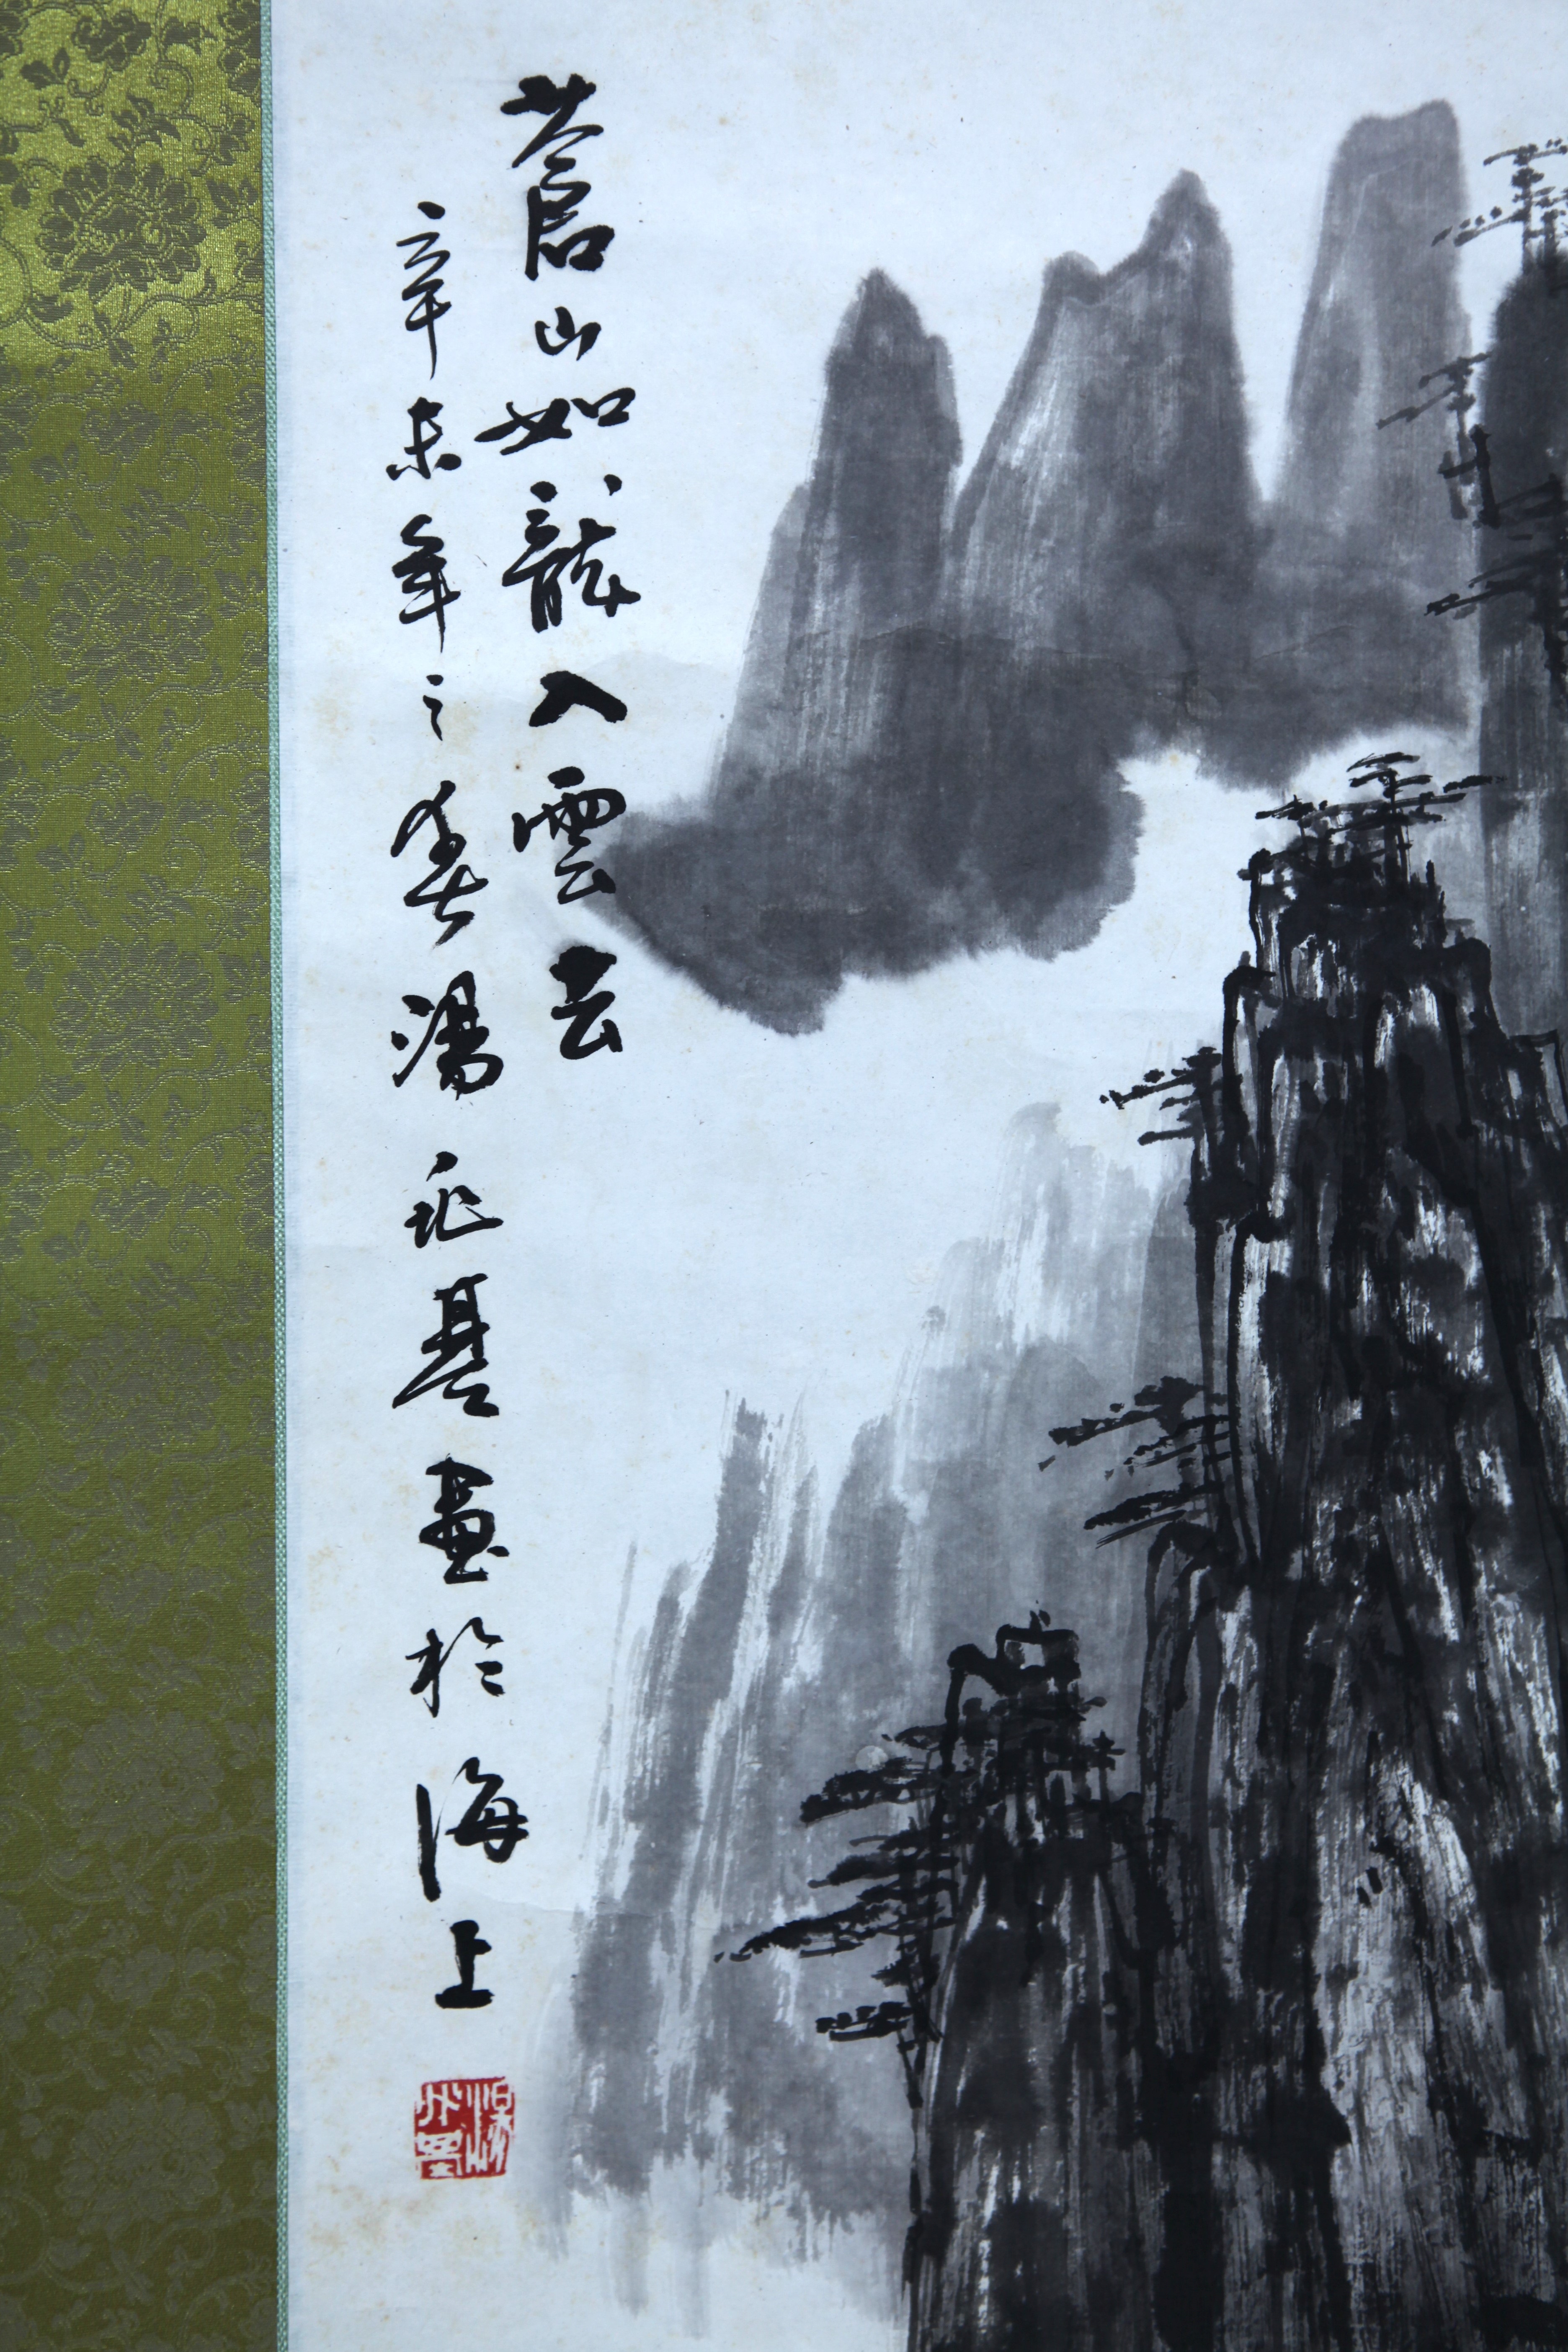 蒼山如龍入雲去
辛未年之春湯兆基畫於海上
湯兆基